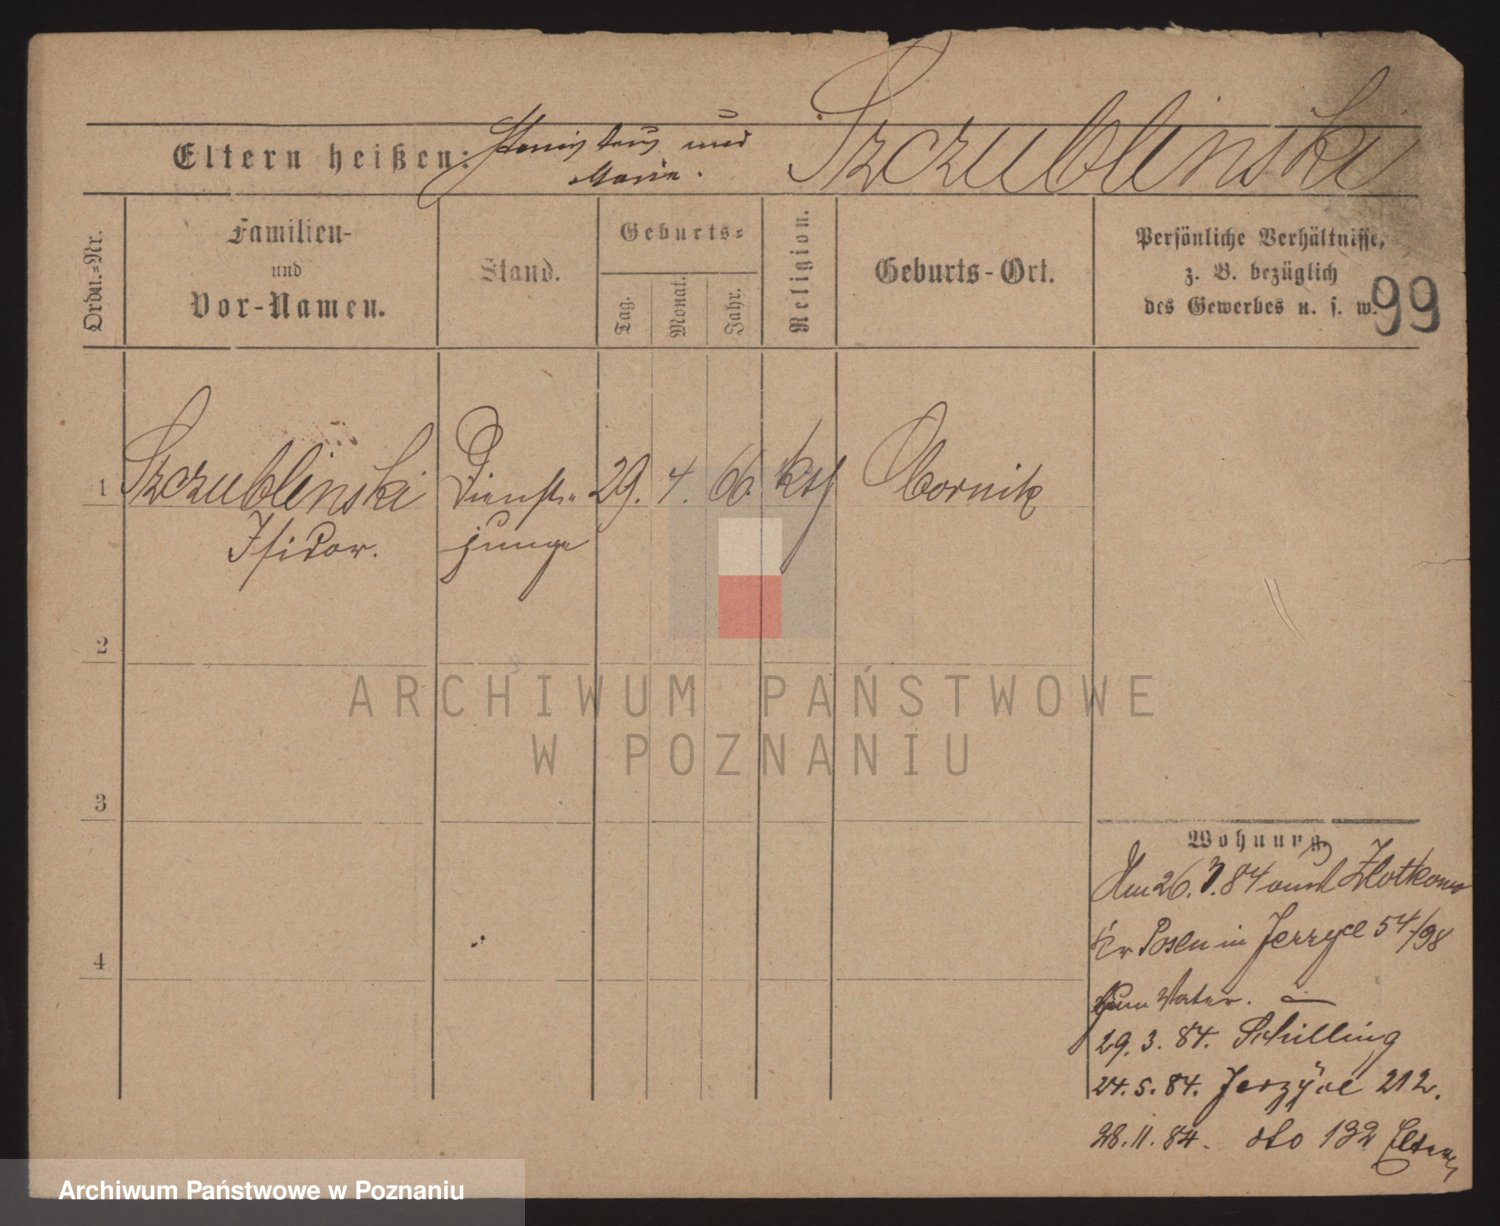 Eltern heißen: Stanislaus und Maria. Szczublinski
Ordn.-Nr.
Familien- und Vor-Namen.
Stand.
Geburts-
Tag.
Monat.
Jahr.
Religion.
Geburts-Ort.
Persönliche Verhältnisse,
z. B. bezüglich
des Gewerbes u. s. w.
99
1 Szczublinski Dienst- 29. 4. 66. kth Obornik
Isidor. junge
2
3
4
Wohnung.
Am 26. 3. 84 aus Zlotkowo
Kr Posen in Jerzyce 54/98
zum Vater.
29. 3. 84. Schilling
24. 5. 84. Jerzyce 212.
28. 11. 84. dto 132 Eltern
ARCHIWUM PAŃSTWOWE
W POZNANIU
Archiwum Państwowe w Poznaniu